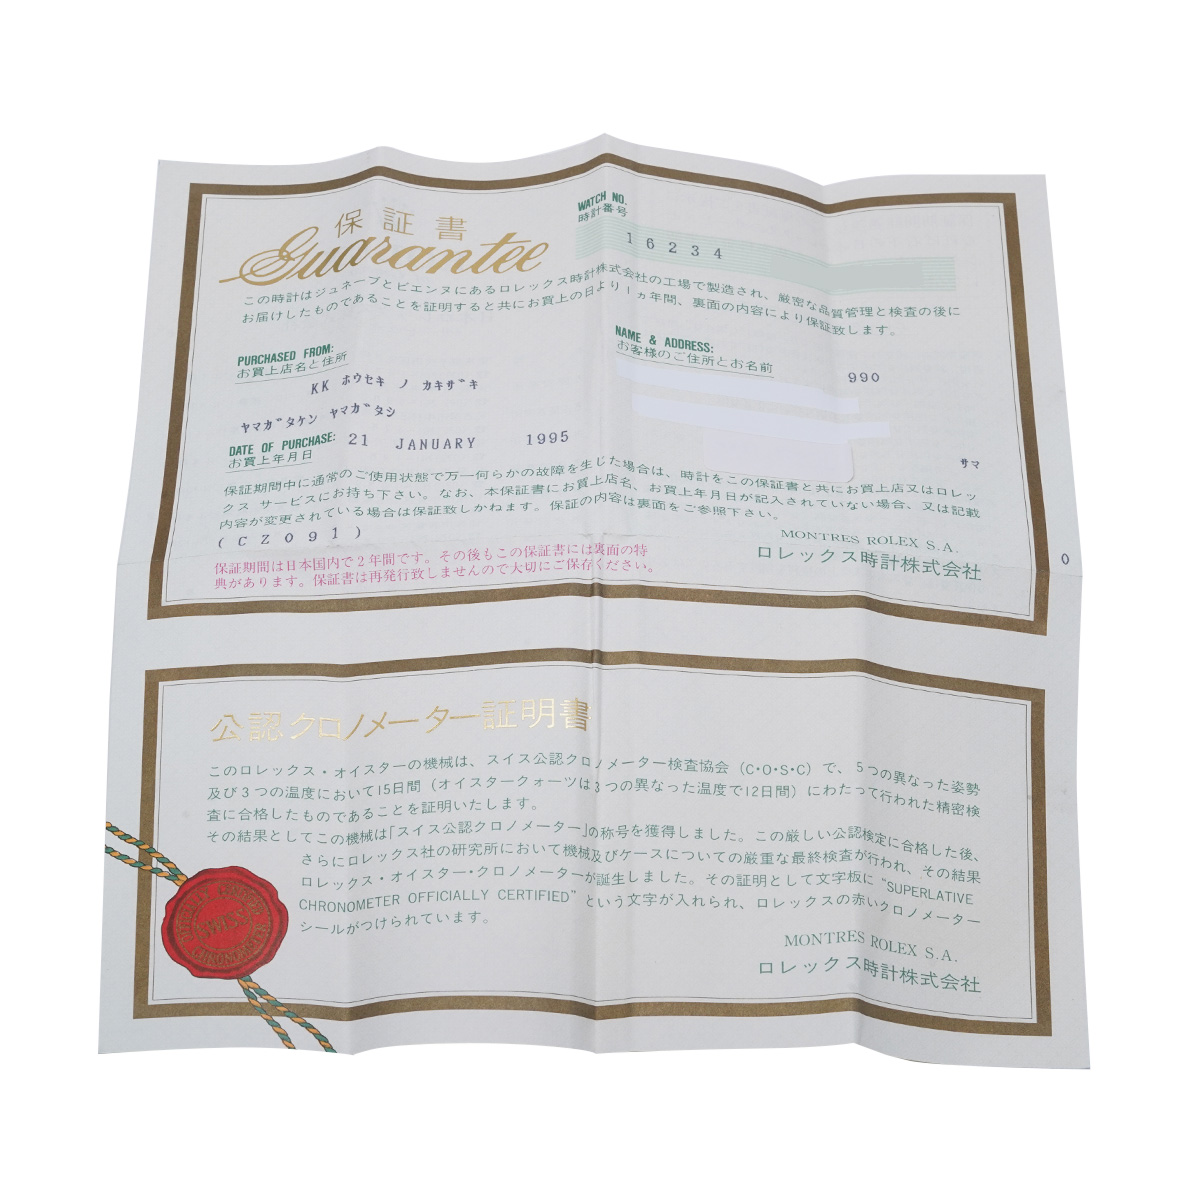 保証書
Guarantee
WATCH NO.
時計番号
16234
この時計はジュネーブとビエンヌにあるロレックス時計株式会社の工場で製造され、厳密な品質管理と検査の後に
お届けしたものであることを証明すると共にお買上の日より1ヵ年間、裏面の内容により保証致します。
PURCHASED FROM:
お買上店名と住所
KK ホウセキ ノ カキザキ
ヤマガタケン ヤマガタシ
NAME & ADDRESS:
お客様のご住所とお名前
990
サマ
DATE OF PURCHASE:
お買上年月日
21 JANUARY 1995
保証期間中に通常のご使用状態で万一何らかの故障を生じた場合は、時計をこの保証書と共にお買上店又はロレッ
クス サービスにお持ち下さい。なお、本保証書にお買上店名、お買上年月日が記入されていない場合、又は記載
内容が変更されている場合は保証致しかねます。保証の内容は裏面をご参照下さい。
(CZ091)
保証期間は日本国内で2年間です。その後もこの保証書には裏面の特
典があります。保証書は再発行致しませんので大切にご保存ください。
MONTRES ROLEX S.A.
ロレックス時計株式会社
0
公認クロノメーター証明書
このロレックス・オイスターの機械は、スイス公認クロノメーター検査協会（C・O・S・C）で、5つの異なった姿勢
及び3つの温度において15日間（オイスタークォーツは3つの異なった温度で12日間）にわたって行われた精密検
査に合格したものであることを証明いたします。
その結果としてこの機械は「スイス公認クロノメーター」の称号を獲得しました。この厳しい公認検定に合格した後、
さらにロレックス社の研究所において機械及びケースについての厳重な最終検査が行われ、その結果
ロレックス・オイスター・クロノメーターが誕生しました。その証明として文字板に“SUPERLATIVE
CHRONOMETER OFFICIALLY CERTIFIED”という文字が入れられ、ロレックスの赤いクロノメーター
シールがつけられています。
MONTRES ROLEX S.A.
ロレックス時計株式会社